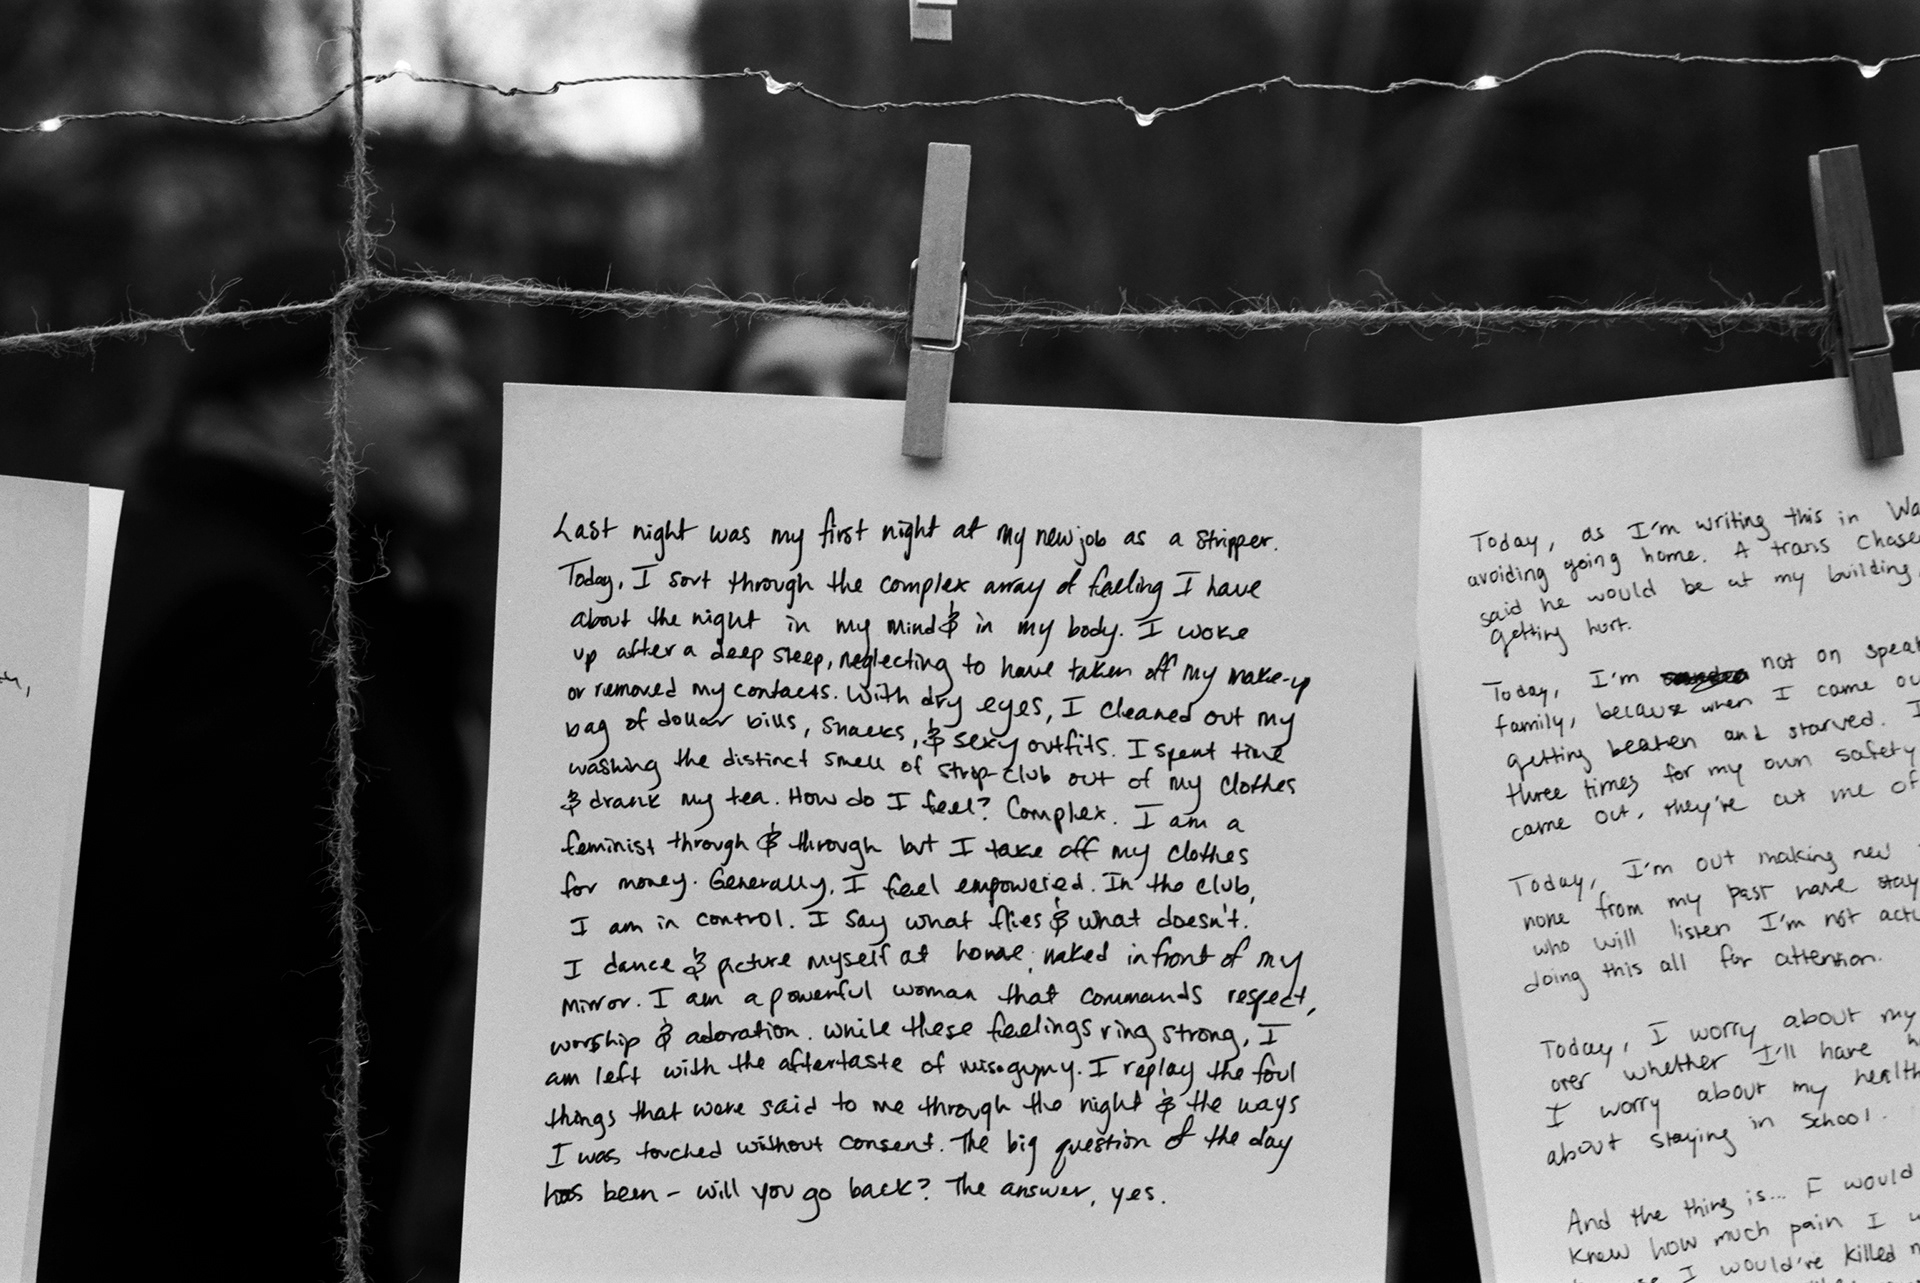 Last night was my first night at my new job as a stripper.
Today, I sort through the complex array of feeling I have
about the night in my mind & in my body. I woke
up after a deep sleep, neglecting to have taken off my make-up
or removed my contacts. With dry eyes, I cleaned out my
bag of dollar bills, snacks, & sexy outfits. I spent time
washing the distinct smell of strip-club out of my clothes
& drank my tea. How do I feel? Complex. I am a
feminist through & through but I take off my clothes
for money. Generally, I feel empowered. In the club,
I am in control. I say what flies & what doesn't.
I dance & picture myself at home, naked in front of my
mirror. I am a powerful woman that commands respect,
worship & adoration. While these feelings ring strong, I
am left with the aftertaste of misogyny. I replay the foul
things that were said to me through the night & the ways
I was touched without consent. The big question of the day
has been - will you go back? The answer, yes.
Today, as I'm writing this in
avoiding going home. A trans
said he would be at my building,
getting hurt.
Today, I'm not on
family, because when I came
getting beaten and starved.
three times for my own safety
came out, they're cut me
Today, I'm out making new
none from my past have
who will listen I'm not
doing this all for attention.
Today, I worry about my
over whether I'll have
I worry about my
about staying in school.
And the thing is... I would
knew how much pain I
I would've killed